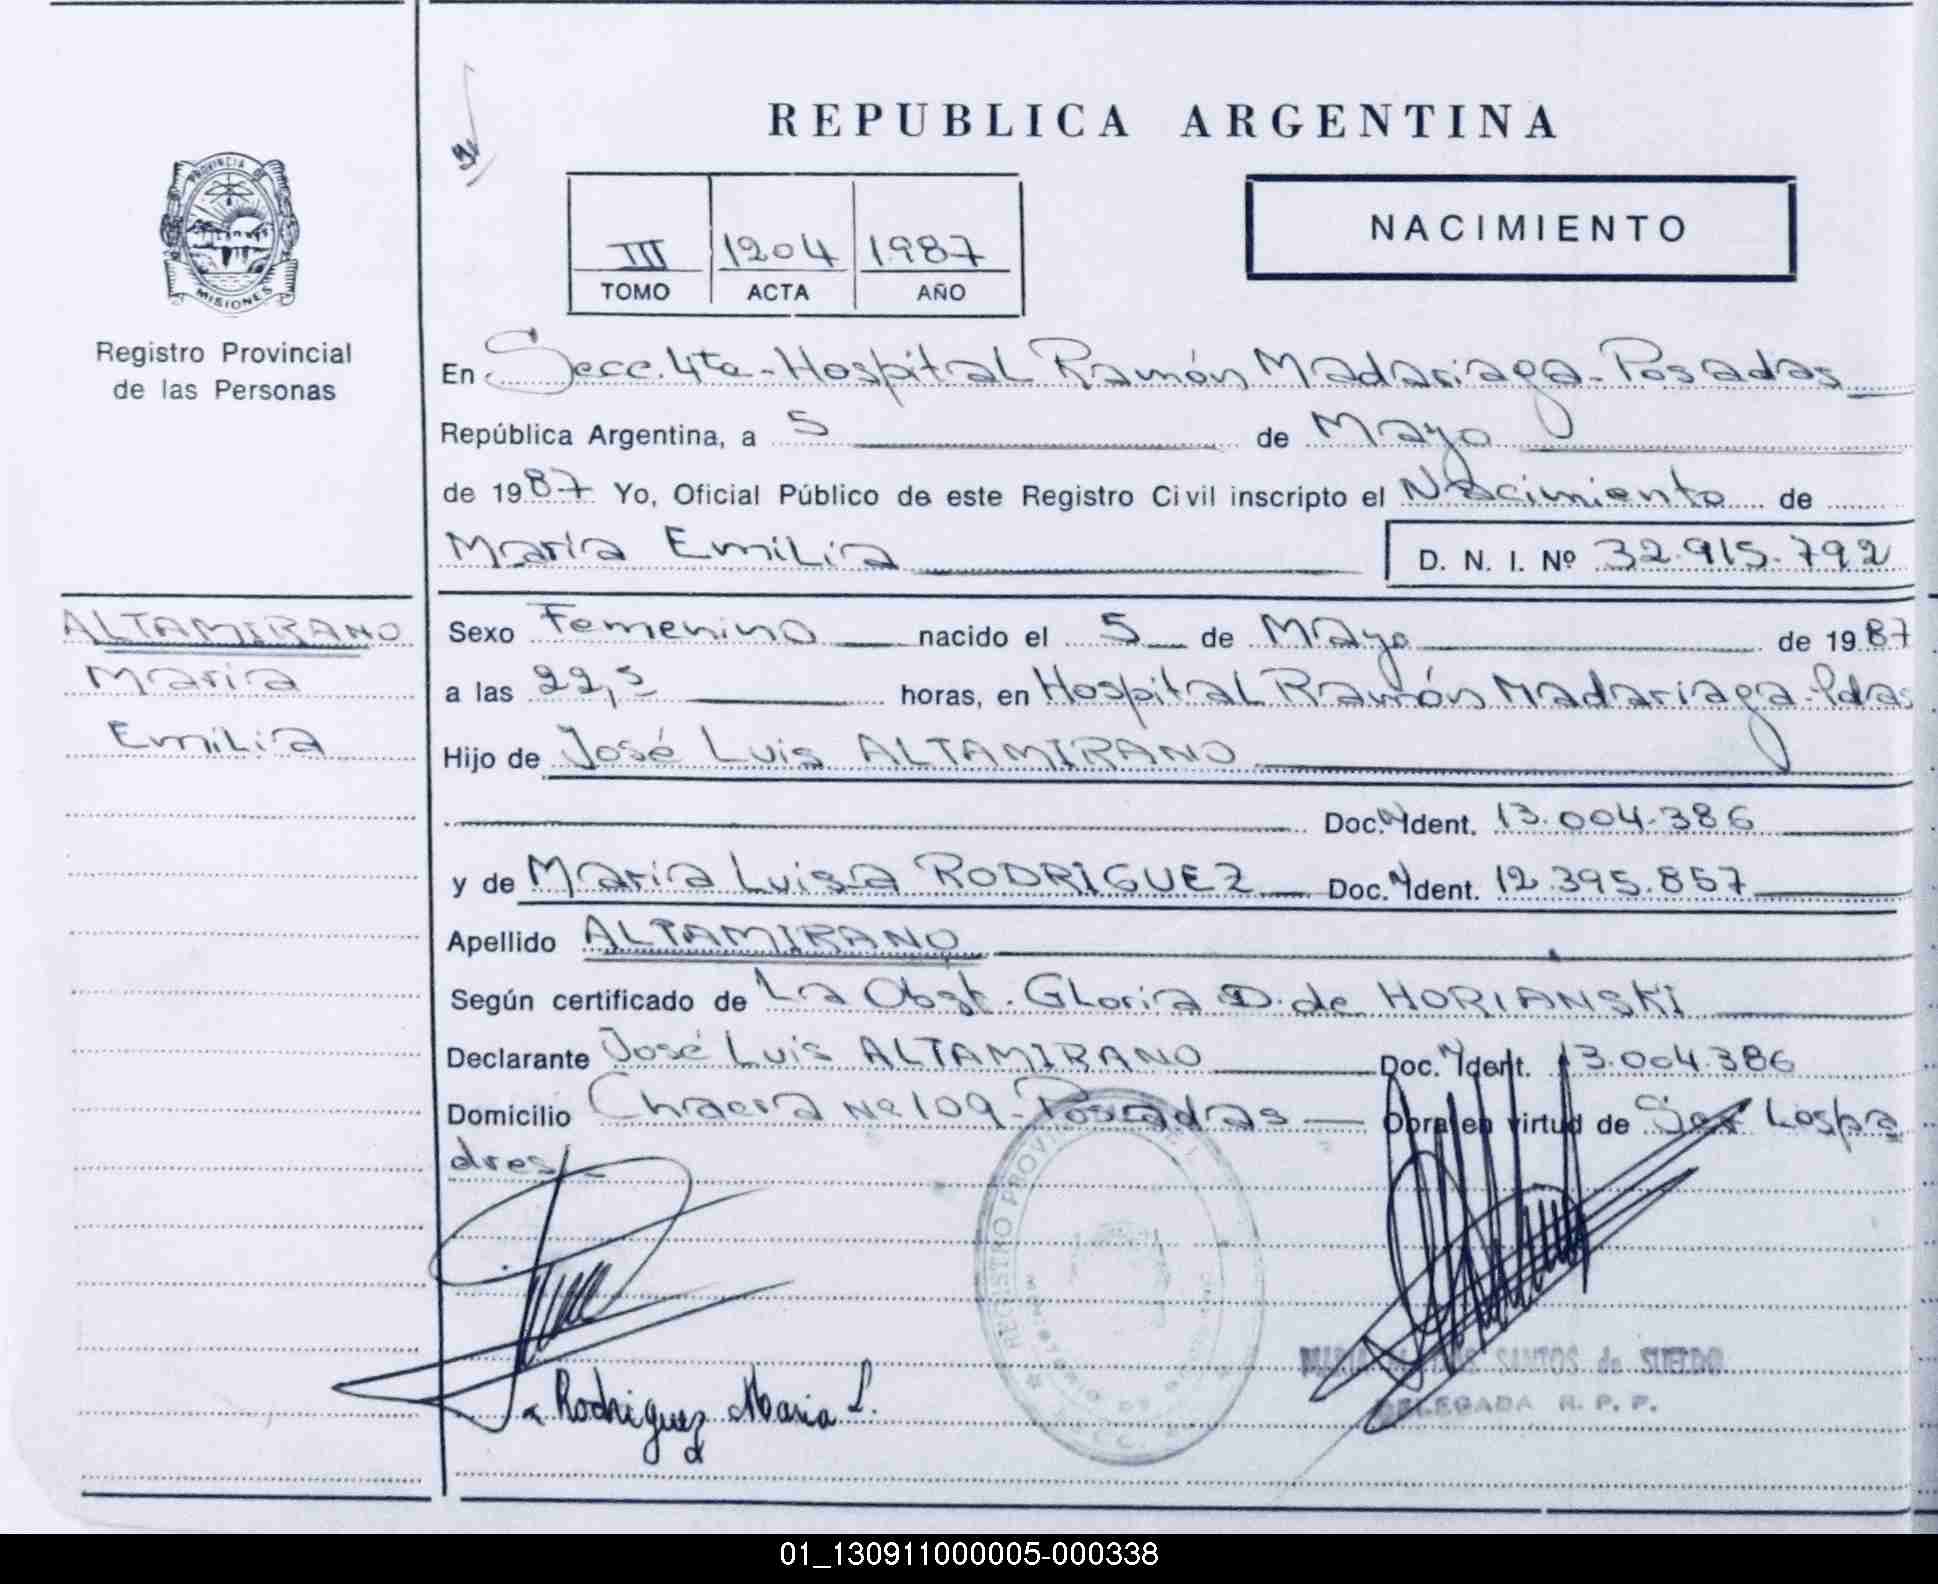 REPUBLICA ARGENTINA
PROVINCIA DE
MISIONES
Registro Provincial
de las Personas
III 1204 1987
TOMO ACTA AÑO
NACIMIENTO
En Secc. 4ta - Hospital Ramón Madariaga - Posadas
República Argentina, a 5 de Mayo
de 1987 Yo, Oficial Público de este Registro Civil inscripto el Nacimiento de
María Emilia D. N. I. Nº 32.915.792
ALTAMIRANO
María
Emilia
Sexo Femenino nacido el 5 de Mayo de 1987
a las 22,5 horas, en Hospital Ramón Madariaga - Pdas
Hijo de José Luis ALTAMIRANO
Doc. N Ident. 13.004.386
y de María Luisa RODRIGUEZ Doc. N Ident. 12.395.857
Apellido ALTAMIRANO
Según certificado de La Obst. Gloria D. de HORIANSKI
Declarante José Luis ALTAMIRANO Doc. N Ident. 13.004.386
Domicilio Chacra Nº 109 - Posadas Obra en virtud de Ser Los pa
dres
REGISTRO PROVINCIAL
Rodriguez Maria L.
SANTOS de
DELEGADA R. P. P.
01_130911000005-000338